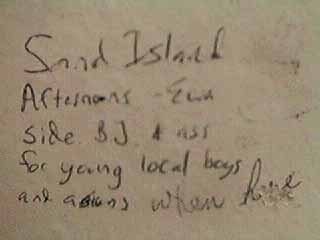 Sand Island
Afternoons - Ewa
side BJ & ass
for young local boys
and asians when